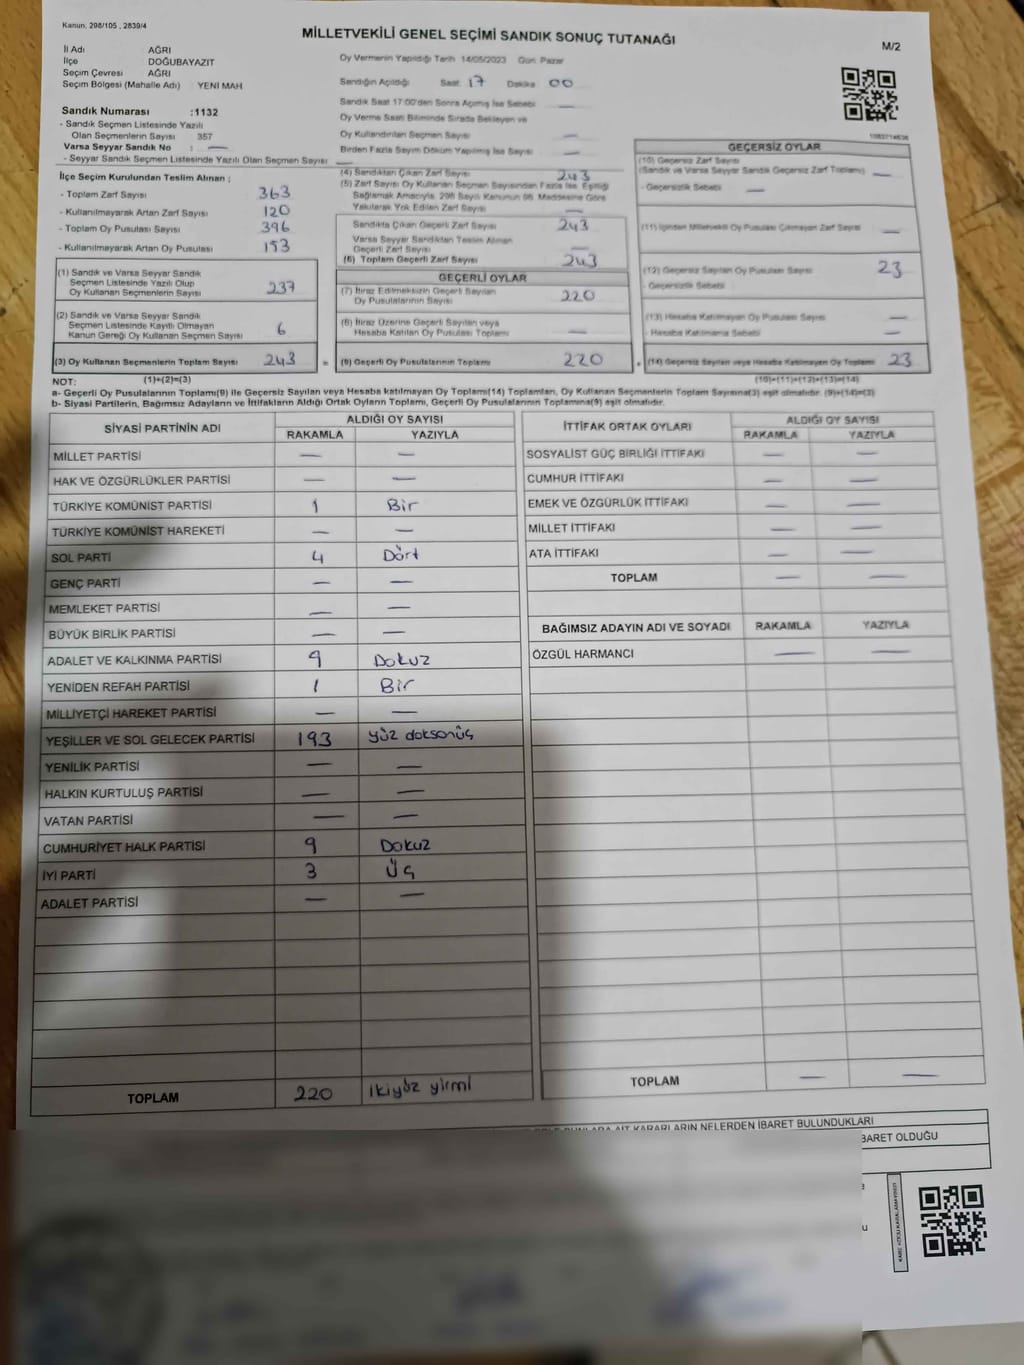 Kanun, 298/105 , 2839/4
MİLLETVEKİLİ GENEL SEÇİMİ SANDIK SONUÇ TUTANAĞI
M/2
İl Adı AĞRI
İlçe DOĞUBAYAZIT
Seçim Çevresi AĞRI
Seçim Bölgesi (Mahalle Adı) YENİ MAH
Oy Vermenin Yapıldığı Tarih 14/05/2023 Gün Pazar
Sandığın Açıldığı Saat 17 Dakika 00
Sandık Saat 17:00'den Sonra Açılmış İse Sebebi —
Oy Verme Saati Bitiminde Sırada Bekleyen ve
Oy Kullandırılan Seçmen Sayısı —
Birden Fazla Sayım Döküm Yapılmış İse Sayısı —
Sandık Numarası :1132
- Sandık Seçmen Listesinde Yazılı
Olan Seçmenlerin Sayısı 357
Varsa Seyyar Sandık No : —
- Seyyar Sandık Seçmen Listesinde Yazılı Olan Seçmen Sayısı —
İlçe Seçim Kurulundan Teslim Alınan ;
- Toplam Zarf Sayısı 363
- Kullanılmayarak Artan Zarf Sayısı 120
- Toplam Oy Pusulası Sayısı 396
- Kullanılmayarak Artan Oy Pusulası 153
(1) Sandık ve Varsa Seyyar Sandık
Seçmen Listesinde Yazılı Olup
Oy Kullanan Seçmenlerin Sayısı 237
(2) Sandık ve Varsa Seyyar Sandık
Seçmen Listesinde Kayıtlı Olmayan
Kanun Gereği Oy Kullanan Seçmen Sayısı 6
(3) Oy Kullanan Seçmenlerin Toplam Sayısı 243
(4) Sandıktan Çıkan Zarf Sayısı 243
(5) Zarf Sayısı Oy Kullanan Seçmen Sayısından Fazla İse, Eşitliği
Sağlamak Amacıyla, 298 Sayılı Kanunun 98. Maddesine Göre
Yakılarak Yok Edilen Zarf Sayısı —
Sandıkta Çıkan Geçerli Zarf Sayısı 243
Varsa Seyyar Sandıktan Teslim Alınan
Geçerli Zarf Sayısı —
(6) Toplam Geçerli Zarf Sayısı 243
GEÇERLİ OYLAR
(7) İtiraz Edilmeksizin Geçerli Sayılan
Oy Pusulalarının Sayısı 220
(8) İtiraz Üzerine Geçerli Sayılan veya
Hesaba Katılan Oy Pusulası Toplamı —
= (9) Geçerli Oy Pusulalarının Toplamı 220
GEÇERSİZ OYLAR
(10) Geçersiz Zarf Sayısı
(Sandık ve Varsa Seyyar Sandık Geçersiz Zarf Toplamı) —
- Geçersizlik Sebebi —
(11) İçinden Milletvekili Oy Pusulası Çıkmayan Zarf Sayısı —
(12) Geçersiz Sayılan Oy Pusulası Sayısı 23
- Geçersizlik Sebebi
(13) Hesaba Katılmayan Oy Pusulası Sayısı —
- Hesaba Katılmama Sebebi —
+ (14) Geçersiz Sayılan veya Hesaba Katılmayan Oy Toplamı 23
NOT: (1)+(2)=(3) (10)+(11)+(12)+(13)=(14)
a- Geçerli Oy Pusulalarının Toplamı(9) ile Geçersiz Sayılan veya Hesaba katılmayan Oy Toplamı(14) Toplamları, Oy Kullanan Seçmenlerin Toplam Sayısına(3) eşit olmalıdır. (9)+(14)=(3)
b- Siyasi Partilerin, Bağımsız Adayların ve İttifakların Aldığı Ortak Oyların Toplamı, Geçerli Oy Pusulalarının Toplamına(9) eşit olmalıdır.
SİYASİ PARTİNİN ADI ALDIĞI OY SAYISI
RAKAMLA YAZIYLA
MİLLET PARTİSİ — —
HAK VE ÖZGÜRLÜKLER PARTİSİ — —
TÜRKİYE KOMÜNİST PARTİSİ 1 Bir
TÜRKİYE KOMÜNİST HAREKETİ — —
SOL PARTİ 4 Dört
GENÇ PARTİ — —
MEMLEKET PARTİSİ — —
BÜYÜK BİRLİK PARTİSİ — —
ADALET VE KALKINMA PARTİSİ 9 Dokuz
YENİDEN REFAH PARTİSİ 1 Bir
MİLLİYETÇİ HAREKET PARTİSİ — —
YEŞİLLER VE SOL GELECEK PARTİSİ 193 yüz doksanüç
YENİLİK PARTİSİ — —
HALKIN KURTULUŞ PARTİSİ — —
VATAN PARTİSİ — —
CUMHURİYET HALK PARTİSİ 9 Dokuz
İYİ PARTİ 3 Üç
ADALET PARTİSİ — —
TOPLAM 220 ikiyüz yirmi
İTTİFAK ORTAK OYLARI ALDIĞI OY SAYISI
RAKAMLA YAZIYLA
SOSYALİST GÜÇ BİRLİĞİ İTTİFAKI — —
CUMHUR İTTİFAKI — —
EMEK VE ÖZGÜRLÜK İTTİFAKI — —
MİLLET İTTİFAKI — —
ATA İTTİFAKI — —
TOPLAM — —
BAĞIMSIZ ADAYIN ADI VE SOYADI RAKAMLA YAZIYLA
ÖZGÜL HARMANCI — —
TOPLAM — —
KARARLARIN NELERDEN İBARET BULUNDUKLARI
BARET OLDUĞU